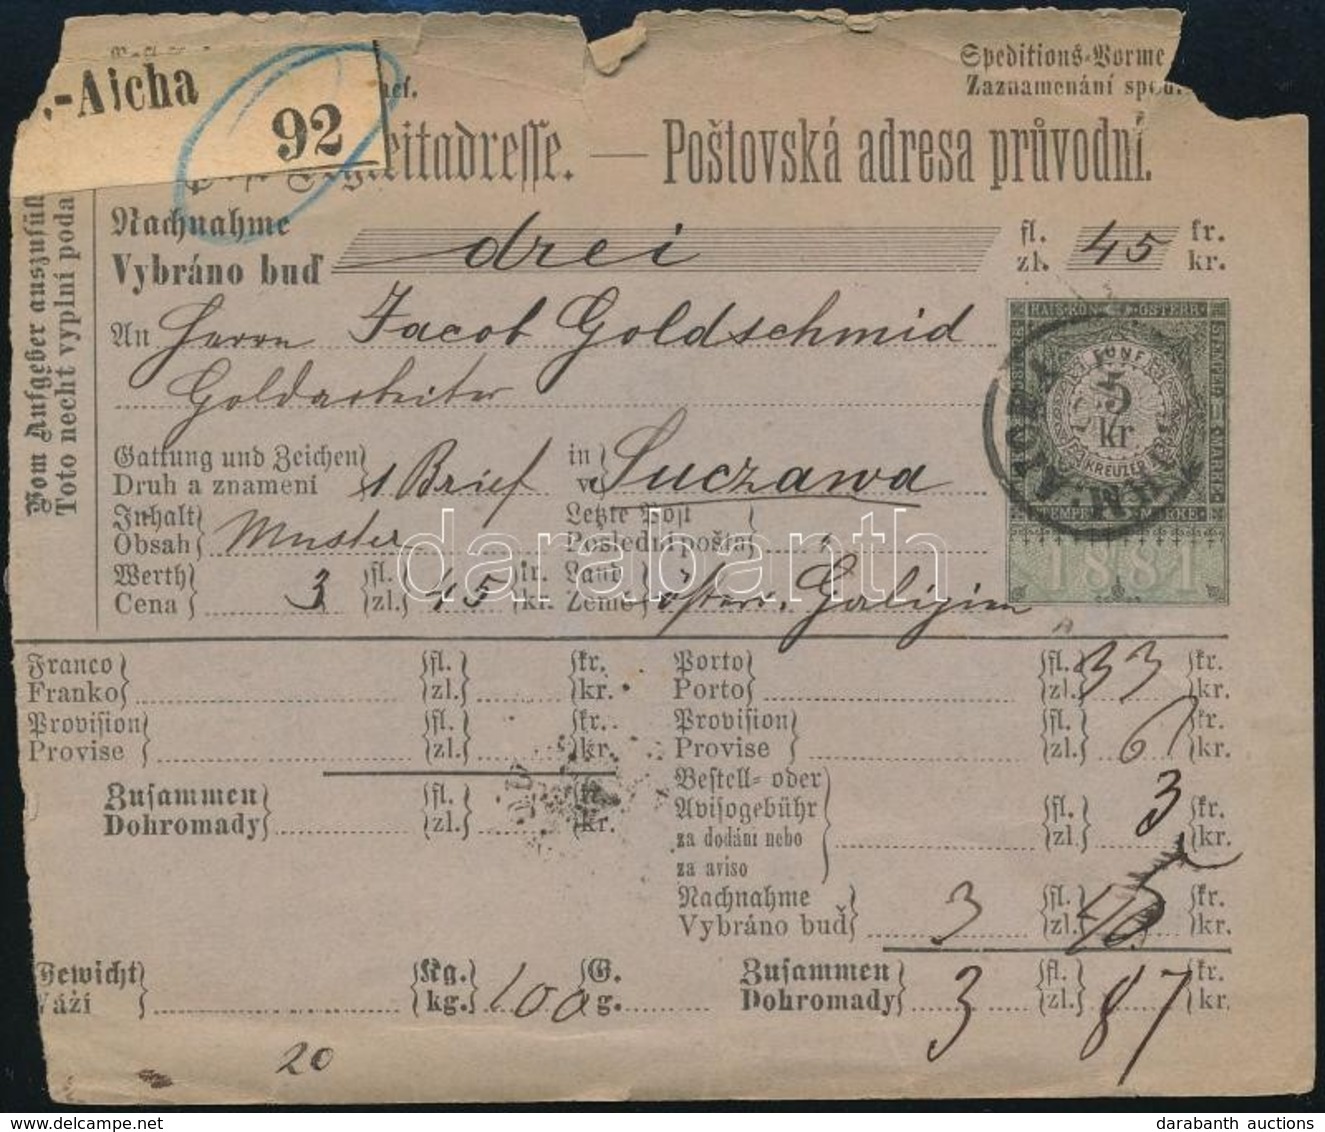 .-Aicha
92
Speditions-Vorme
Zaznamenání sped.
eitadresse. — Poštovská adresa průvodní.
Vom Aufgeber auszufüll
Toto necht vyplní poda
Nachnahme drei fl. 45 kr.
Vybráno buď zl. kr.
An Herrn Jacob Goldschmid
Goldarbeiter
KAIS. KÖN. ÖSTERR.
STEMPEL MARKE
FÜNF
5
kr.
KREUZER
1881
Gattung und Zeichen 1 Brief in Suczawa
Druh a znamení v
Inhalt Muster Letzte Post "
Obsah Poslední pošta
Werth 3 fl. 45 kr. Land österr. Galizien
Cena zl. kr. Země
Franco fl. kr. Porto fl. 33 kr.
Franko zl. kr. Porto zl. kr.
Provision fl. kr. Provision fl. 6 kr.
Provise zl. kr. Provise zl. kr.
Bestell- oder
Zusammen fl. kr. Avisogebühr fl. 3 kr.
Dohromady zl. kr. za dodání nebo zl. kr.
za aviso
Nachnahme 3 fl. 45 kr.
Vybráno buď zl. kr.
Gewicht Kg. 100 G. Zusammen 3 fl. 87 kr.
Váží kg. g. Dohromady zl. kr.
20
darabanth
darabanth auctions
delcampe.net